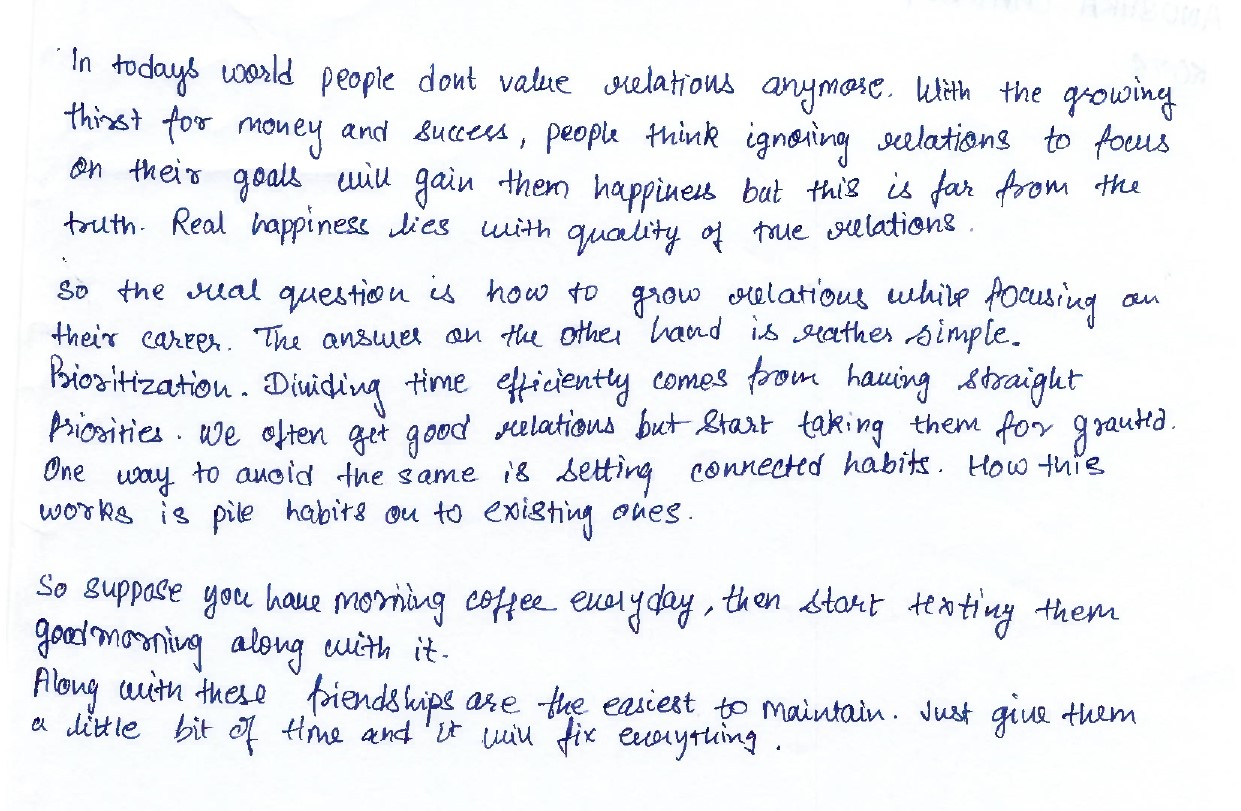 In todays world people dont value relations anymore. With the growing
thirst for money and success, people think ignoring relations to focus
on their goals will gain them happiness but this is far from the
truth. Real happiness lies with quality of true relations.
So the real question is how to grow relations while focusing on
their career. The answer on the other hand is rather simple.
Prioritization. Dividing time efficiently comes from having straight
Priorities. We often get good relations but start taking them for granted.
One way to avoid the same is setting connected habits. How this
works is pile habits on to existing ones.
So suppose you have morning coffee everyday, then start texting them
goodmorning along with it.
Along with these friendships are the easiest to maintain. Just give them
a little bit of time and it will fix everything.